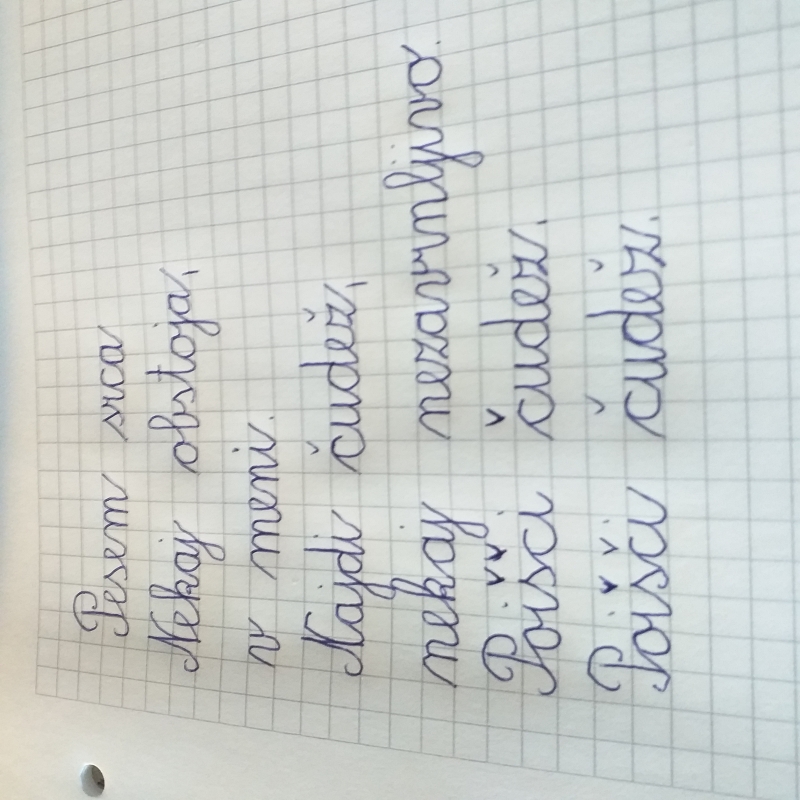 Pesem srca
Nekaj obstoja,
v meni.
Najdi čudež,
nekaj nezavrnljivo.
Poišči čudež.
Poišči čudež.